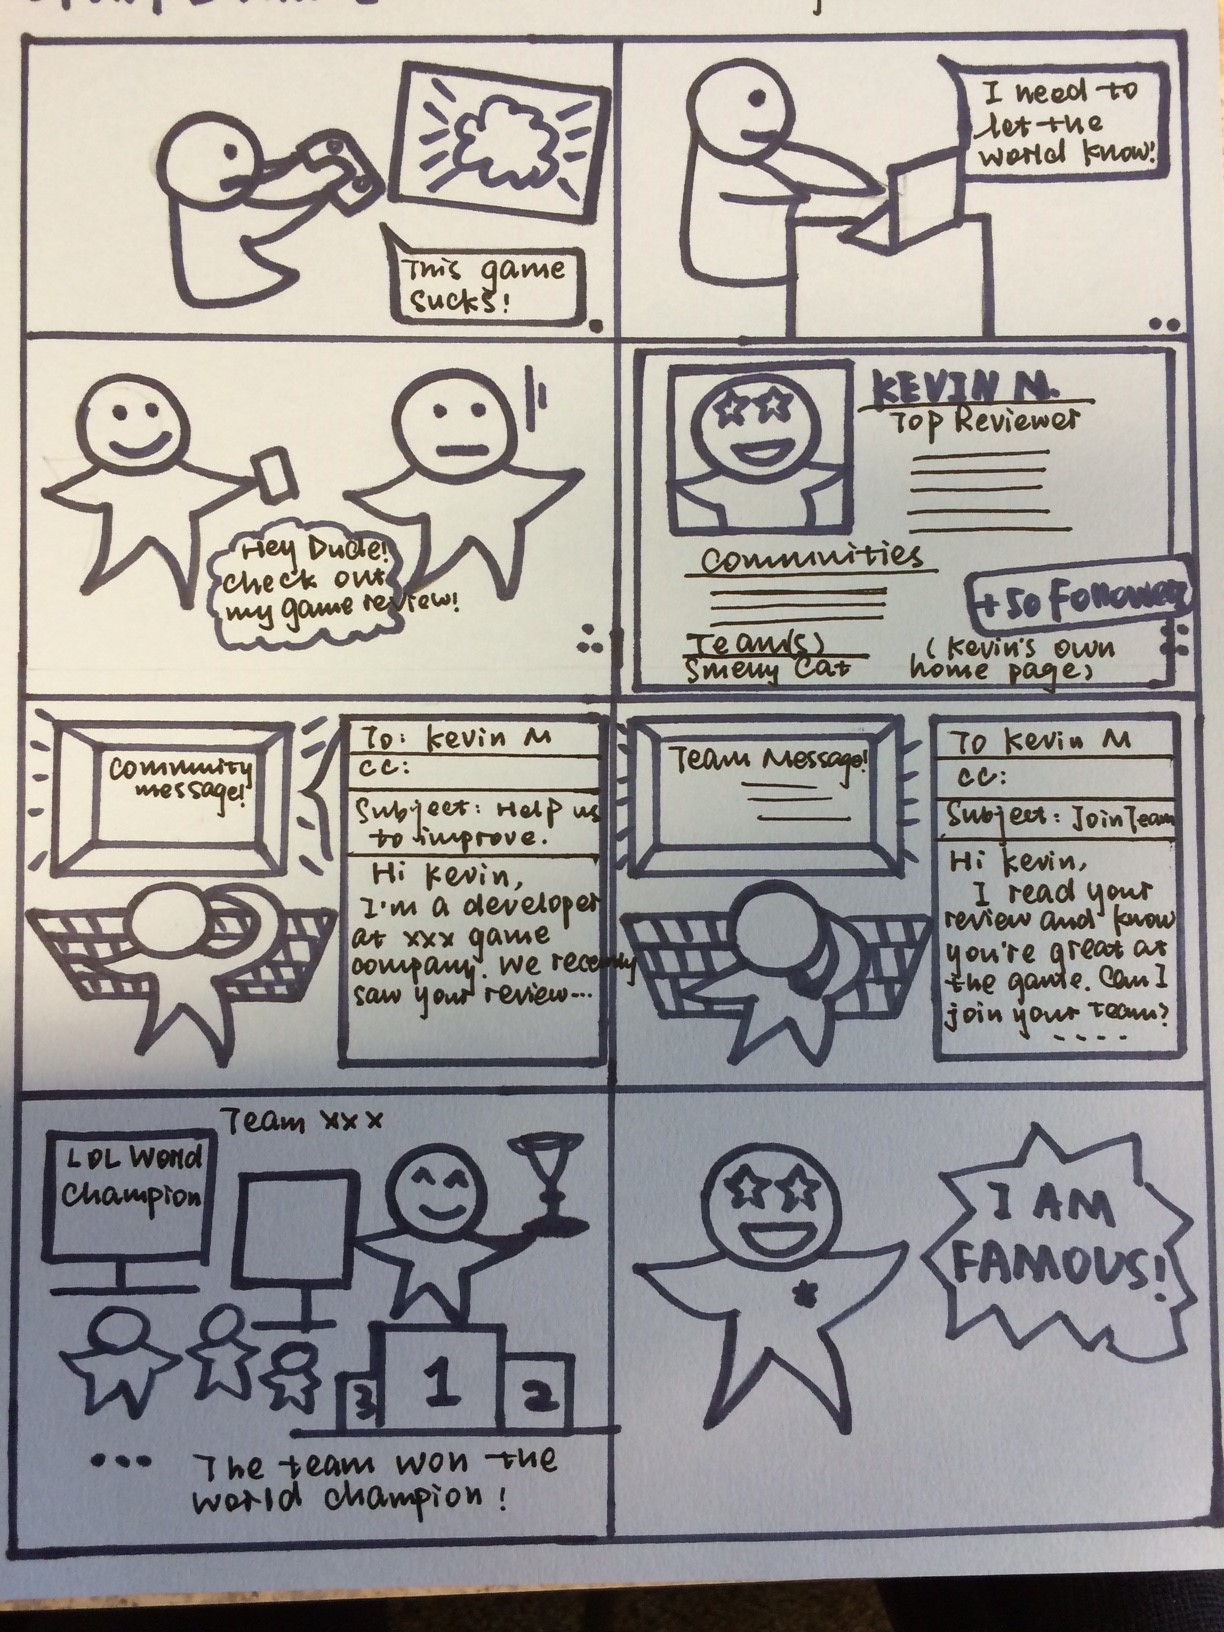 This game
sucks!
I need to
let the
world know!
Hey Dude!
Check out
my game review!
KEVIN M.
Top Reviewer
Communities
+50 Follower
Team(s)
Smelly Cat
(Kevin's own
home page)
Community
message!
To: Kevin M
CC:
Subject: Help us
to improve.
Hi Kevin,
I'm a developer
at xxx game
company. We recently
saw your review...
Team Message!
To Kevin M
CC:
Subject: Join Team
Hi Kevin,
I read your
review and know
you're great at
the game. Can I
join your team?
....
Team xxx
LOL World
Champion
3
1
2
... The team won the
world champion!
I AM
FAMOUS!